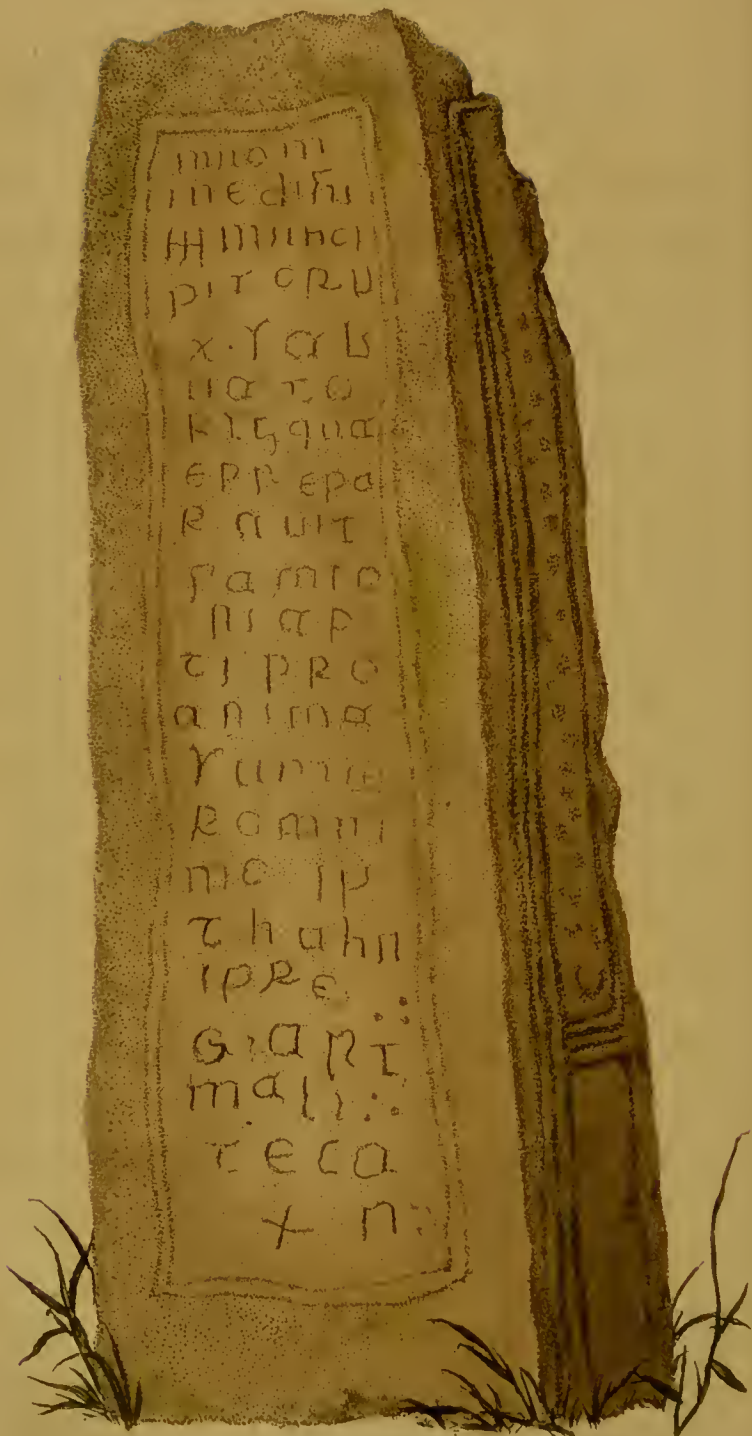 mnom
inedihi
mmunci
pit cru
x·sal
uato
risqua
eprepa
rauit
samio
niap
ti pro
anima
sumie
romini
mo ip
thuhn
ipre
G1art
mali
teca
+ n